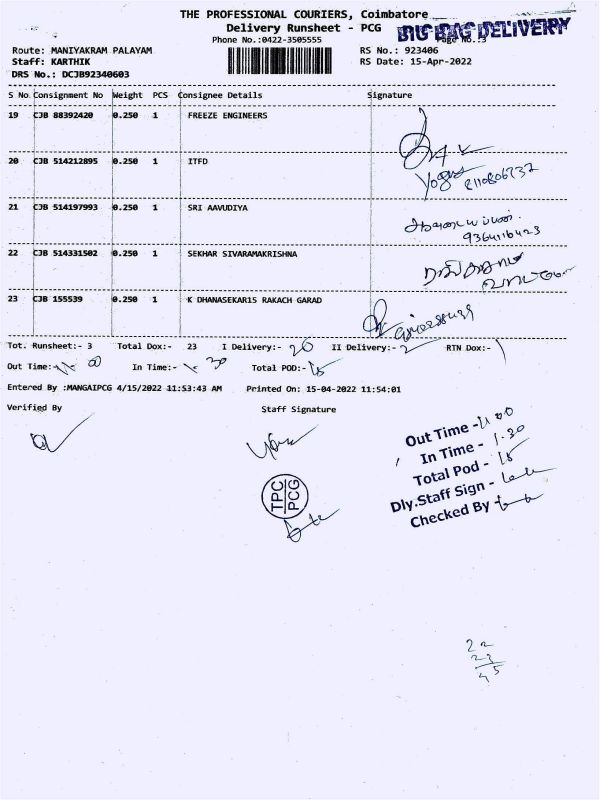 THE PROFESSIONAL COURIERS, Coimbatore
Delivery Runsheet - PCG
BIG BAG DELIVERY
Phone No.:0422-3505555
Page No.:3
Route: MANIYAKRAM PALAYAM
RS No.: 923406
Staff: KARTHIK
RS Date: 15-Apr-2022
DRS No.: DCJB92340603
S No Consignment No Weight PCS Consignee Details Signature
19 CJB 88392420 0.250 1 FREEZE ENGINEERS
20 CJB 514212895 0.250 1 ITFD
8110806737
21 CJB 514197993 0.250 1 SRI AAVUDIYA
9364116423
22 CJB 514331502 0.250 1 SEKHAR SIVARAMAKRISHNA
23 CJB 155539 0.250 1 K DHANASEKAR15 RAKACH GARAD
Tot. Runsheet:- 3 Total Dox:- 23 I Delivery:- 20 II Delivery:- 2 RTN Dox:- 1
Out Time:- 11.00 In Time:- 1.30 Total POD:- 15
Entered By :MANGAIPCG 4/15/2022 11:53:43 AM Printed On: 15-04-2022 11:54:01
Verified By Staff Signature
Out Time - 11.00
In Time - 1.30
Total Pod - 15
Dly.Staff Sign -
Checked By
TPC
PCG
22
23
45